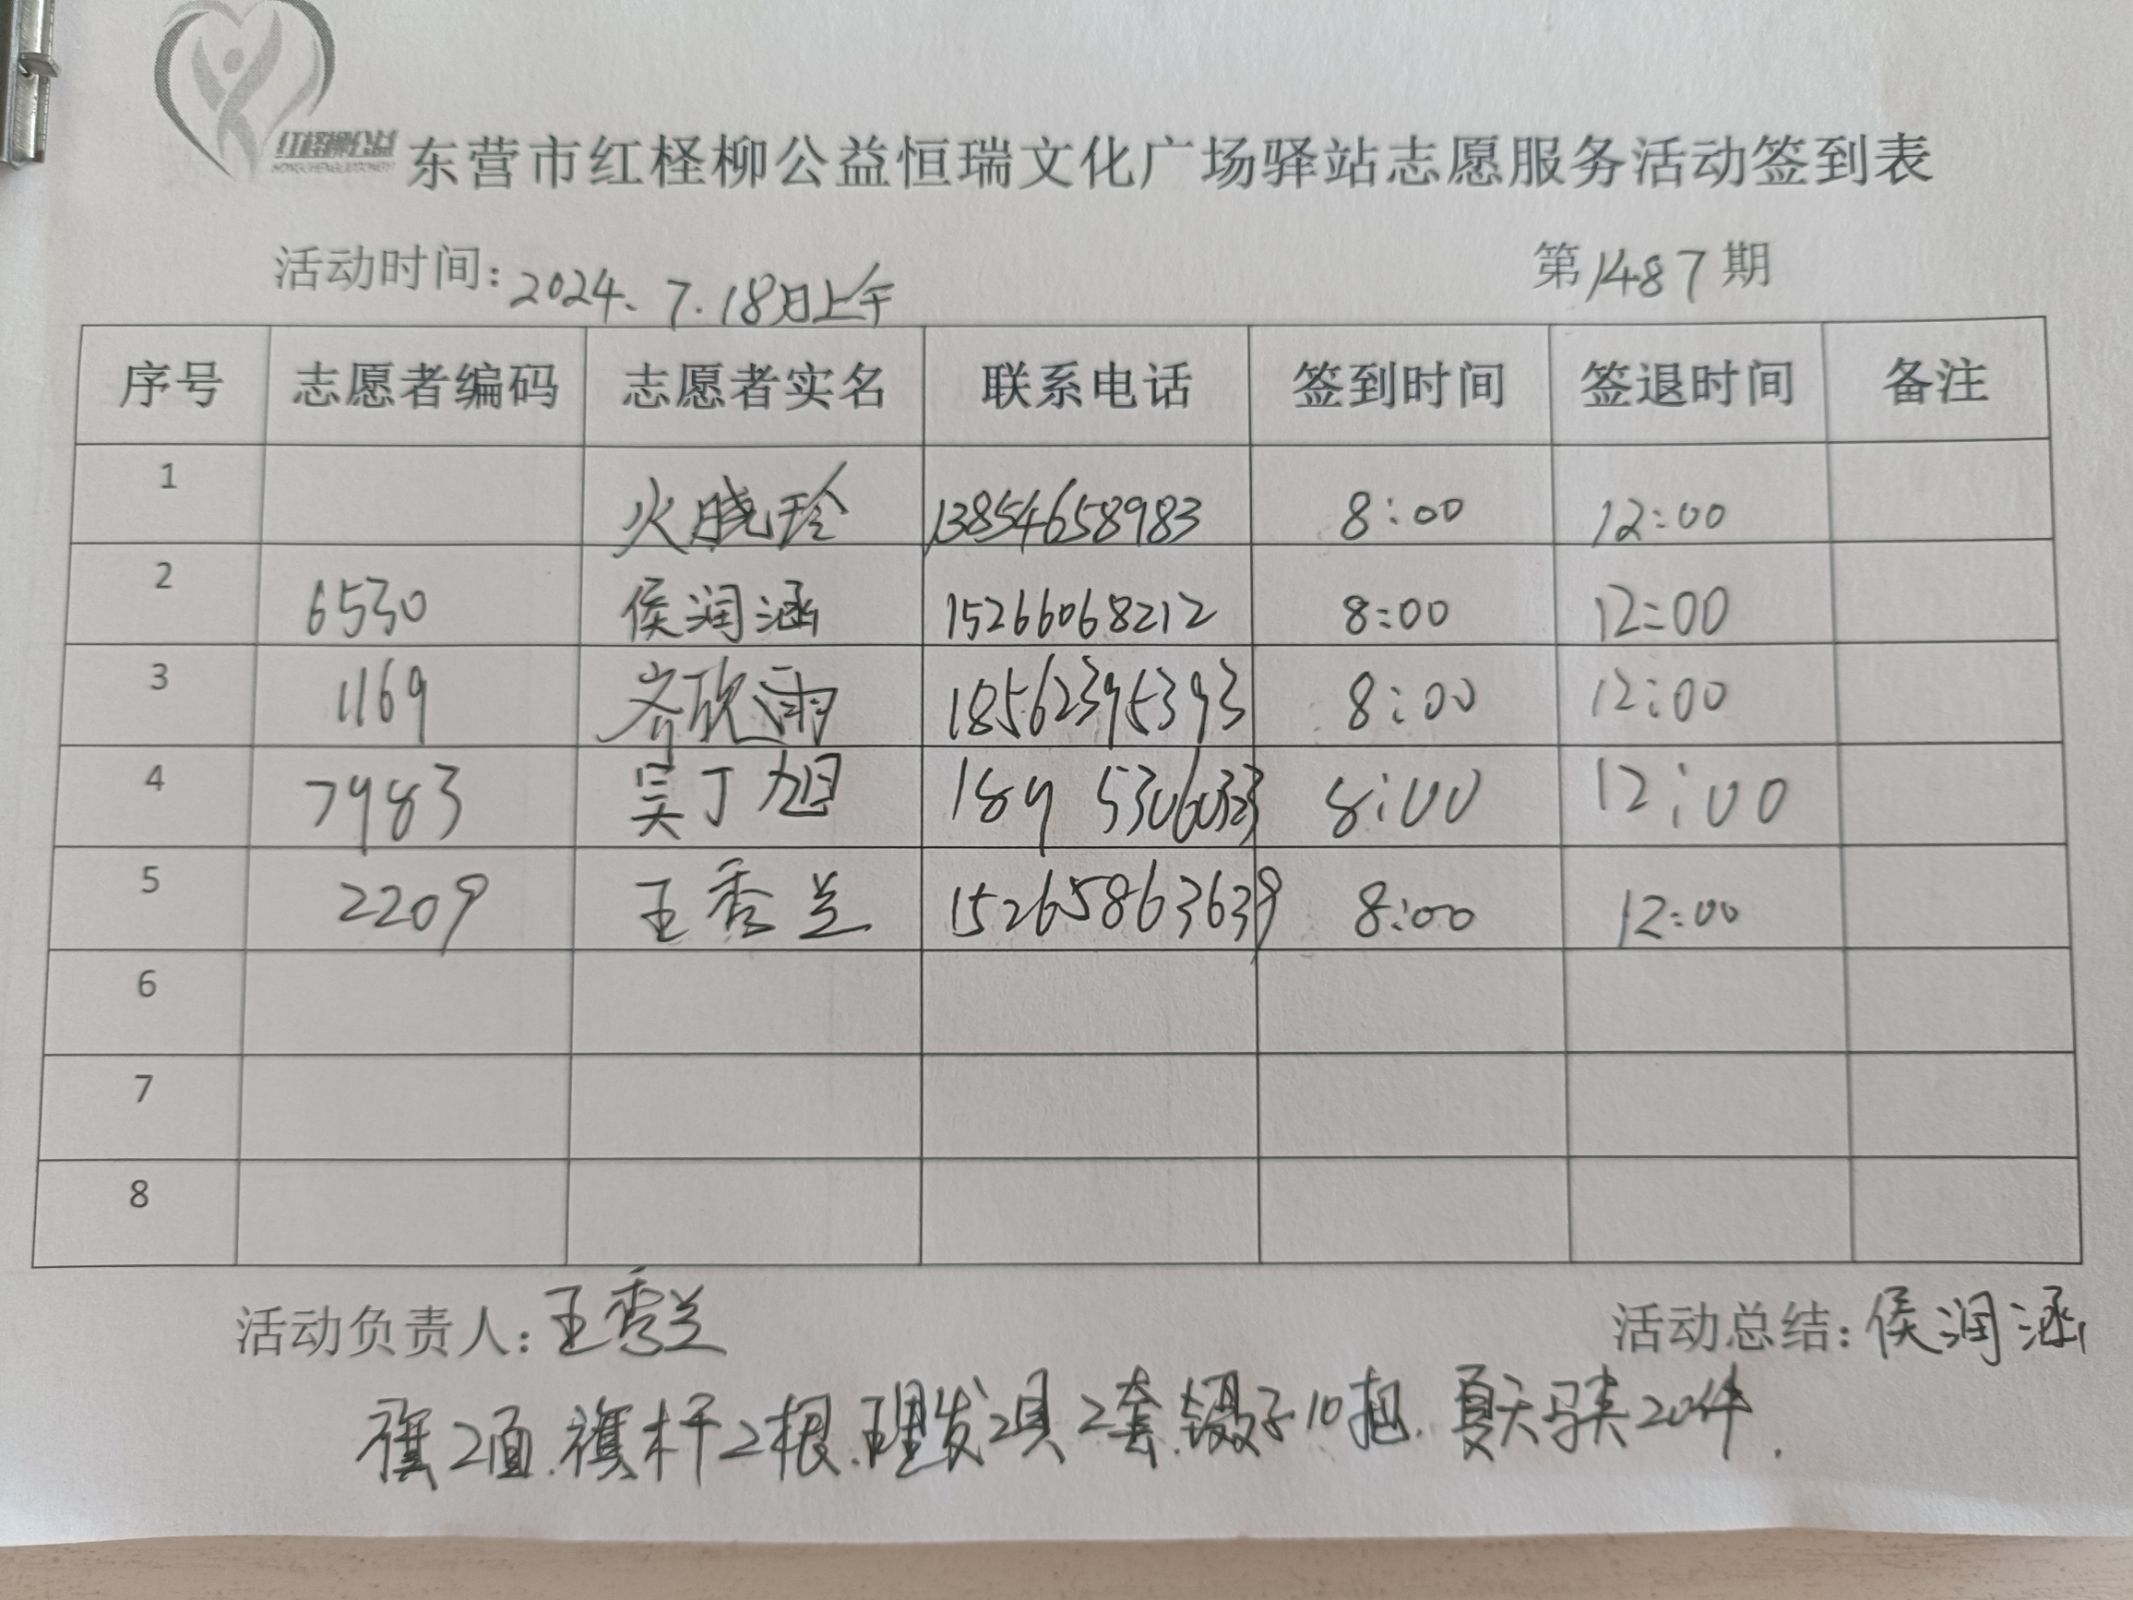 红柽柳公益
东营市红柽柳公益恒瑞文化广场驿站志愿服务活动签到表
活动时间：2024、7.18日上午 第1487期
序号 志愿者编码 志愿者实名 联系电话 签到时间 签退时间 备注
1 火晓玲 13854658983 8:00 12:00
2 6530 侯润涵 15266068212 8:00 12:00
3 1169 齐欣雨 18562395393 8:00 12:00
4 7983 吴丁旭 189 53060323 8:00 12:00
5 2209 王秀兰 15265863639 8:00 12:00
6
7
8
活动负责人：王秀兰 活动总结：侯润涵
旗2面.旗杆2根.理发工具2套.镊子10把.夏天马夹20件.